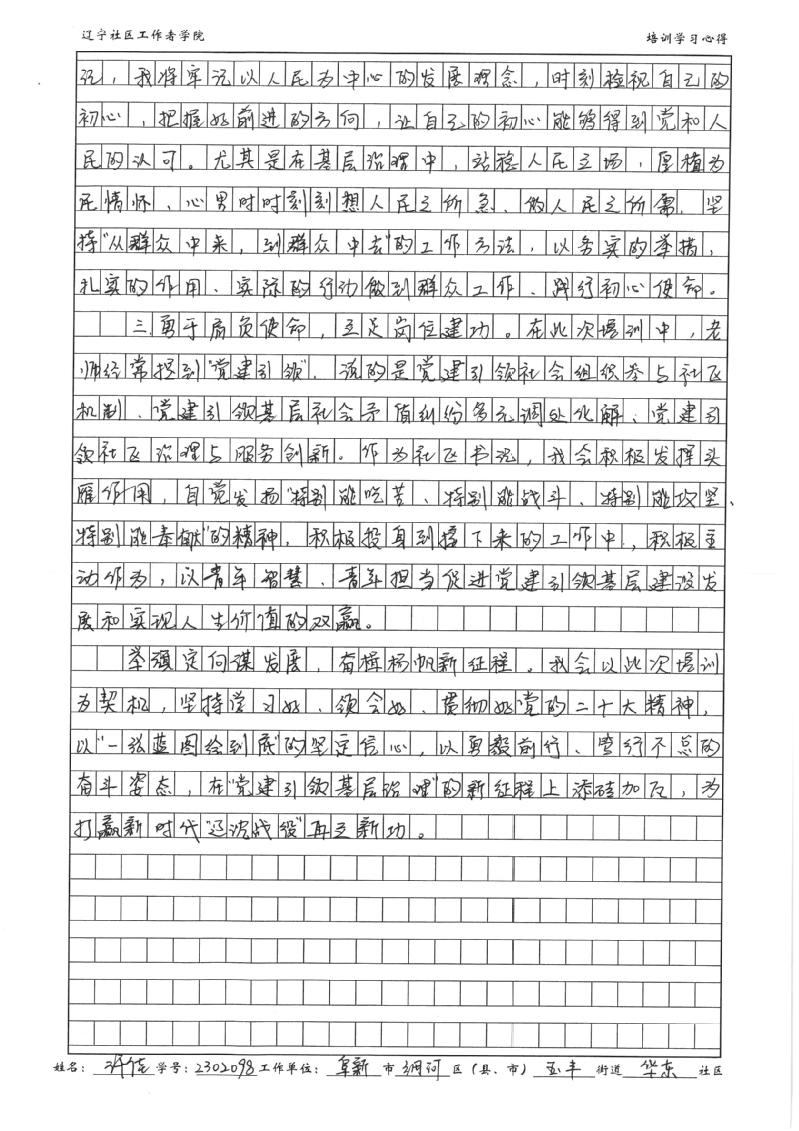 辽宁社区工作者学院 培训学习心得
我将牢记以人民为中心的发展理念，时刻检视自己的
初心，把握好前进的方向，让自己的初心能够得到党和人
民的认可。尤其是在基层治理中，站稳人民立场，厚植为
民情怀、心里时时刻刻想人民之所急、做人民之所需，坚
持“从群众中来，到群众中去”的工作方法，以务实的举措，
扎实的作用、实际的行动做到群众工作、践行初心使命。
三.勇于肩负使命，立足岗位建功。在此次培训中，老
师经常提到“党建引领”，说的是党建引领社会组织参与社区
机制、党建引领基层社会矛盾纠纷多元调处化解、党建引
领社区治理与服务创新。作为社区书记，我会积极发挥头
雁作用，自觉发扬“特别能吃苦、特别能战斗、特别能攻坚、
特别能奉献”的精神，积极投身到接下来的工作中，积极主
动作为，以青年智慧、青年担当促进党建引领基层建设发
展和实现人生价值的双赢。
举旗定向谋发展，奋楫扬帆新征程。我会以此次培训
为契机，坚持学习好、领会好、贯彻好党的二十大精神，
以“一张蓝图绘到底”的坚定信心，以勇毅前行、笃行不怠的
奋斗姿态，在“党建引领基层治理”的新征程上添砖加瓦，为
打赢新时代“辽沈战役”再立新功。
姓名：许佳 学号：2302098 工作单位：阜新 市 细河 区（县、市） 玉丰 街道 华东 社区